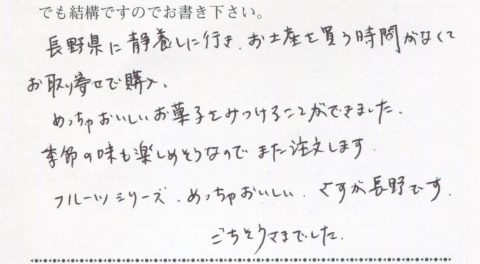 でも結構ですのでお書き下さい。
長野県に静養しに行き、お土産を買う時間がなくて
お取り寄せで購入、
めっちゃおいしいお菓子をみつけることができました。
季節の味も楽しめそうなのでまた注文します。
フルーツシリーズ、めっちゃおいしい、さすが長野です。
ごちそうさまでした。